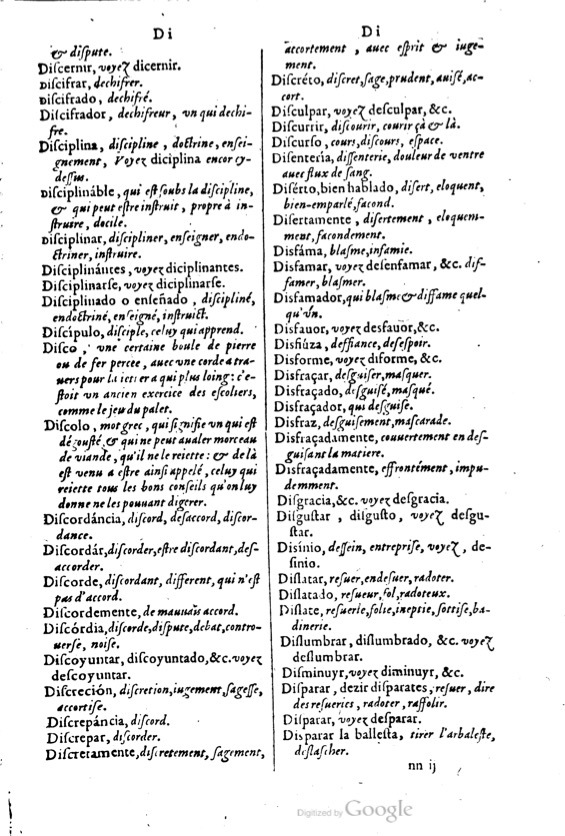 Di
& diſpute.
Diſcernir, voyez dicernir.
Diſcifrar, dechifrer.
Diſcifrado, dechifié.
Diſcifrador, dechifreur, vn qui dechi-
fre.
Diſciplina, diſcipline, doctrine, enſei-
gnement, Voyez diciplina encor cy-
deſſus.
Diſciplináble, qui eſt ſoubs la diſcipline,
& qui peut eſtre inſtruit, propre à in-
ſtruire, docile.
Diſciplinar, diſcipliner, enſeigner, endo-
ctriner, inſtruire.
Diſciplinántes, voyez diciplinantes.
Diſciplinarſe, voyez diciplinarſe.
Diſciplinado o enſeñado, diſcipliné,
endoctriné, enſeigné, inſtruict.
Diſcípulo, diſciple, celuy qui apprend.
Diſco, vne certaine boule de pierre
ou de fer percée, auec vne corde a tra-
uers pour la ietter a qui plus loing: c'e-
ſtoit vn ancien exercice des eſcoliers,
comme le jeu du palet.
Diſcolo, mot grec, qui ſignifie vn qui eſt
dégouſté, & qui ne peut aualer morceau
de viande, qu'il ne le reiette: & de là
eſt venu a eſtre ainſi appelé, celuy qui
reiette tous les bons conſeils qu'on luy
donne ne les pouuant digerer.
Diſcordáncia, diſcord, deſaccord, diſcor-
dance.
Diſcordár, diſcorder, eſtre diſcordant, deſ-
accorder.
Diſcorde, diſcordant, different, qui n'eſt
pas d'accord.
Diſcordemente, de mauuais accord.
Diſcórdia, diſcorde, diſpute, debat, contro-
uerſe, noiſe.
Diſcoyuntar, diſcoyuntado, &c. voyez
deſcoyuntar.
Diſcreción, diſcretion, iugement, ſageſſe,
accortiſe.
Diſcrepáncia, diſcord.
Diſcrepar, diſcorder.
Diſcretamente, diſcretement, ſagement,
Di
accortement, auec eſprit & iuge-
ment.
Diſcréto, diſcret, ſage, prudent, auiſé, ac-
cort.
Diſculpar, voyez deſculpar, &c.
Diſcurrir, diſcourir, courir çà & là.
Diſcurſo, cours, diſcours, eſpace.
Diſenteria, diſſenterie, douleur de ventre
auec flux de ſang.
Diſérto, bien hablado, diſert, eloquent,
bien-emparlé, facond.
Diſertamente, diſertement, eloquem-
ment, facondement.
Disfáma, blaſme, infamie.
Disfamar, voyez deſenfamar, &c. dif-
famer, blaſmer.
Disfamador, qui blaſme & diffame quel-
qu'vn.
Disfauor, voyez desfauor, &c.
Disfiúza, deffiance, deſeſpoir.
Disforme, voyez diforme, &c.
Disfraçar, deſguiſer, maſquer.
Disfraçado, deſguiſé, maſqué.
Disfraçador, qui deſguiſe.
Disfraz, deſguiſement, maſcarade.
Disfraçadamente, couuertement en deſ-
guiſant la matiere.
Disfraçadamente, effrontément, impu-
demment.
Diſgracia, &c. voyez deſgracia.
Diſguſtar, diſguſto, voyez deſgu-
ſtar.
Diſinio, deſſein, entrepriſe, voyez, de-
ſinio.
Diſlatar, reſuer, endeſuer, radoter.
Diſlatado, reſueur, ſol, radoteux.
Diſlate, reſuerie, folie, ineptie, ſottiſe, ba-
dinerie.
Diſlumbrar, diſlumbrado, &c. voyez
deſlumbrar.
Diſminuyr, voyez diminuyr, &c.
Diſparar, dezir diſparates, reſuer, dire
des reſueries, radoter, raſſolir.
Diſparar, voyez deſparar.
Diſparar la balleſta, tirer l'arbaleſte,
deſlaſcher.
nn ij
Digitized by Google